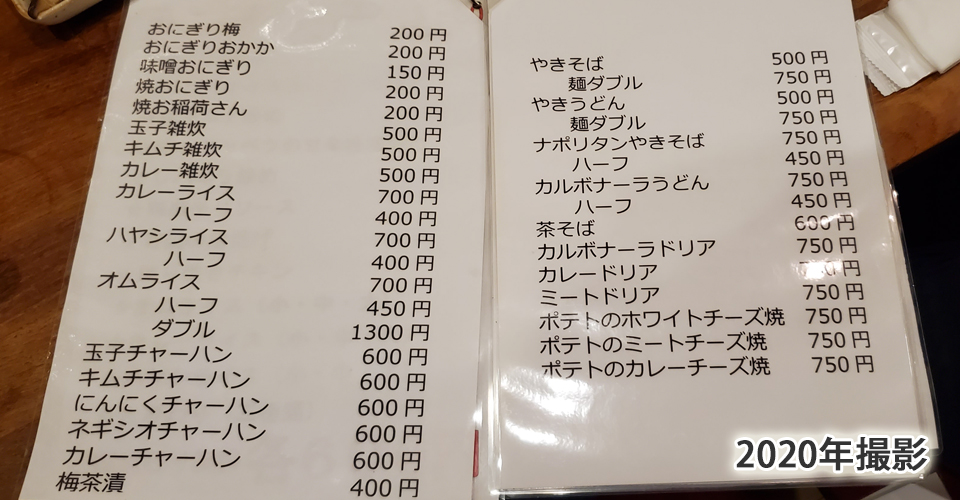 おにぎり梅 200円
おにぎりおかか 200円
味噌おにぎり 150円
焼おにぎり 200円
焼お稲荷さん 200円
玉子雑炊 500円
キムチ雑炊 500円
カレー雑炊 500円
カレーライス 700円
ハーフ 400円
ハヤシライス 700円
ハーフ 400円
オムライス 700円
ハーフ 450円
ダブル 1300円
玉子チャーハン 600円
キムチチャーハン 600円
にんにくチャーハン 600円
ネギシオチャーハン 600円
カレーチャーハン 600円
梅茶漬 400円
やきそば 500円
麺ダブル 750円
やきうどん 500円
麺ダブル 750円
ナポリタンやきそば 750円
ハーフ 450円
カルボナーラうどん 750円
ハーフ 450円
茶そば 600円
カルボナーラドリア 750円
カレードリア 円
ミートドリア 750円
ポテトのホワイトチーズ焼 750円
ポテトのミートチーズ焼 750円
ポテトのカレーチーズ焼 750円
2020年撮影